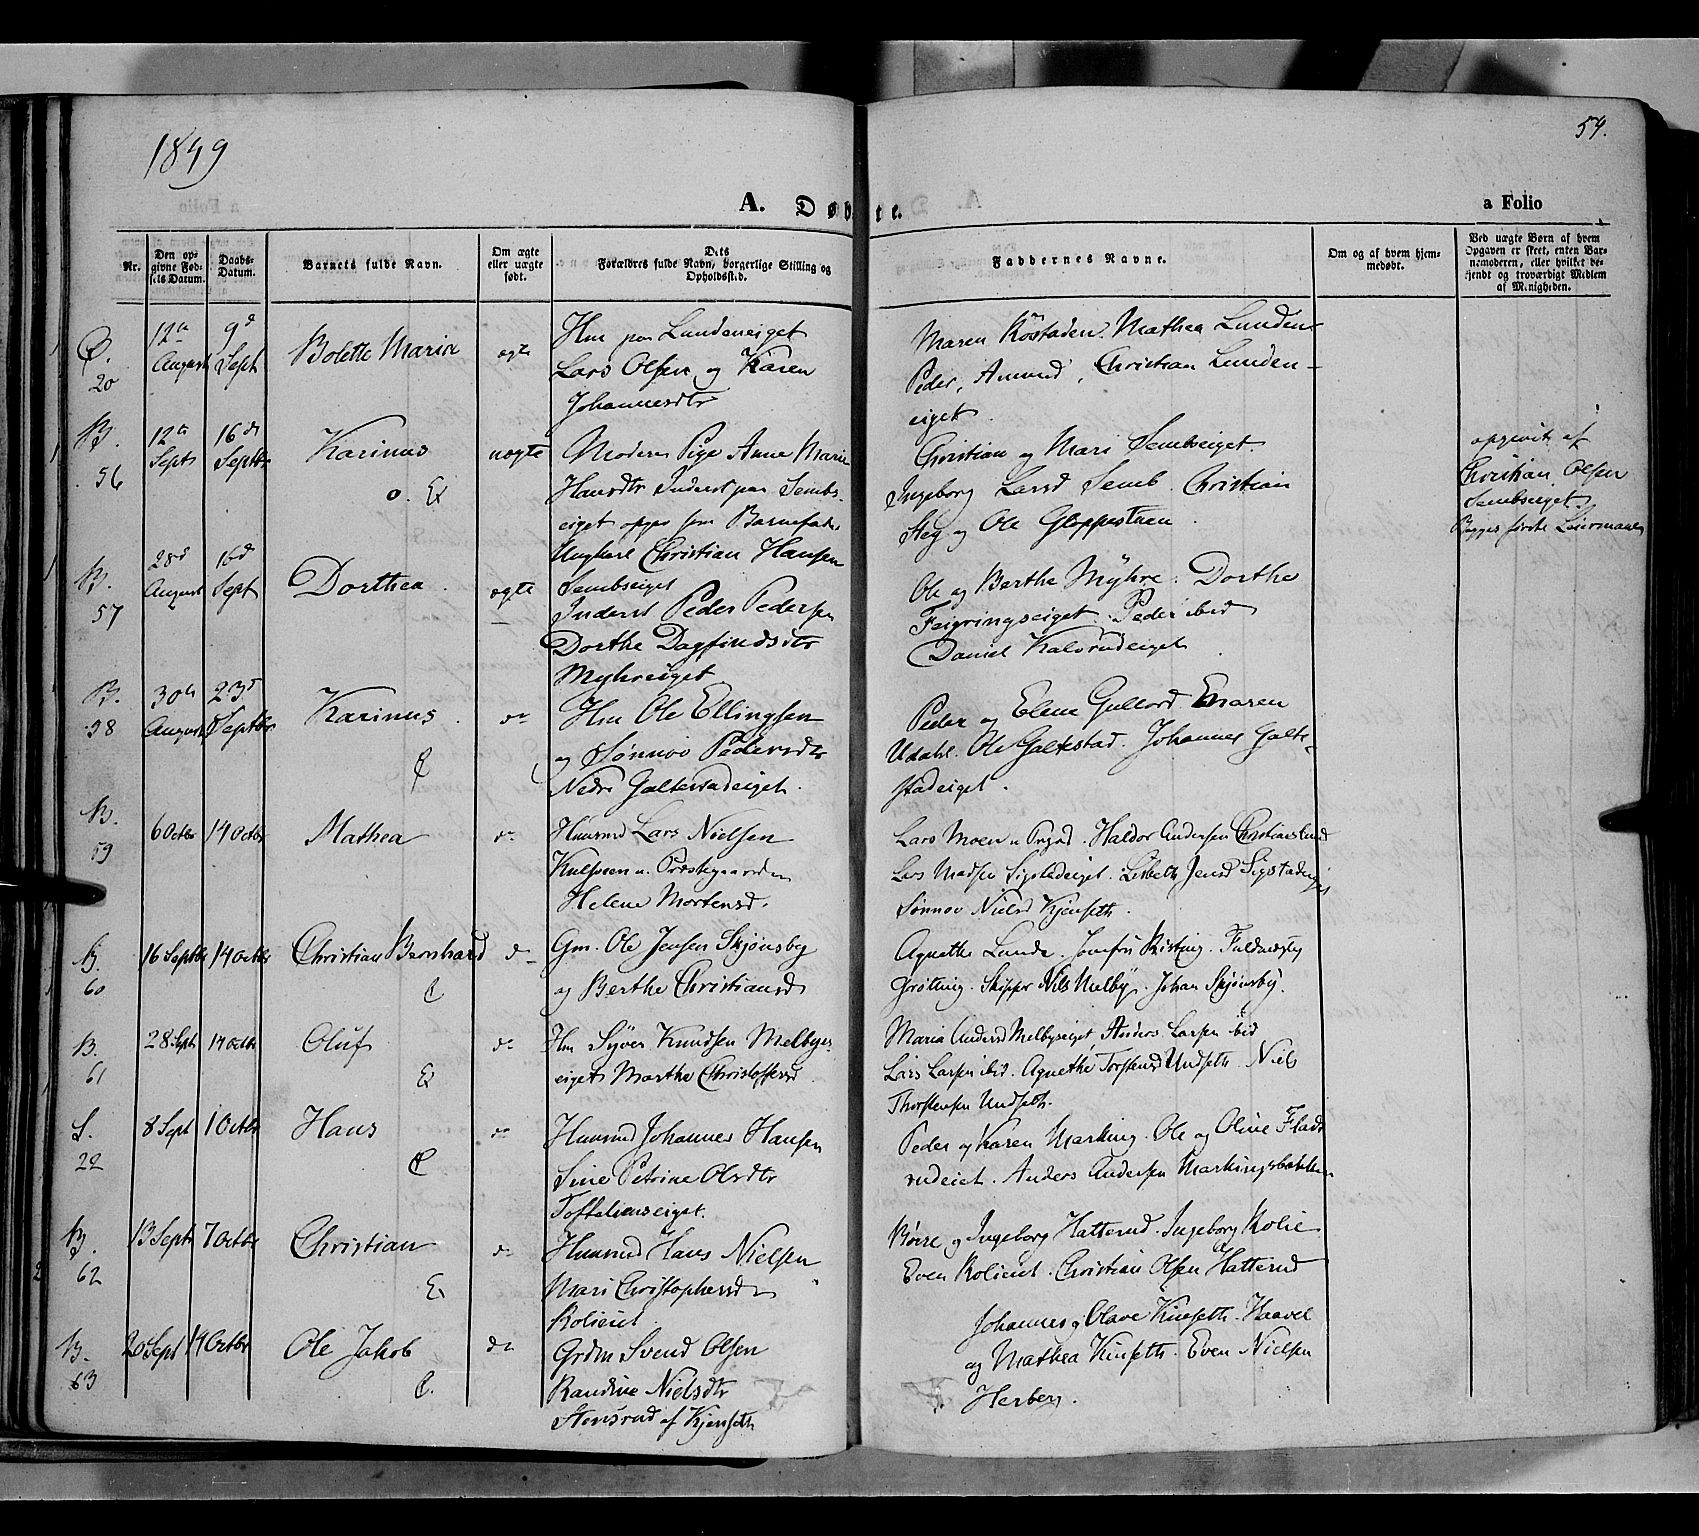 1849
54.
A. Døbte.
a Folio
Nr.
Den op-
givne Fød-
sels Datum.
Daabs-
Datum.
Barnets fulde Navn.
Om ægte
eller uægte
født.
Dets
Forældres fulde Navn, borgerlige Stilling og
Opholdssted.
Faddernes Navne.
Om og af hvem hjem-
medøbt.
Ved uægte Børn af hvem
Opgaven er skeet, enten Bar-
nemoderen, eller hvilket be-
kjendt og troværdigt Medlem
af Menigheden.
20
12te August
9d Sept
Bolette Maria
ægte
Hm paa Lundeneiget
Lars Olsen og Karen
Johannesdtr
Maren Kostaden. Mathea Lunden
Peder, Amund, Christian Lunden-
eiget.
B. 56
12te Sept
16de Septbr
Karinus
uægte
Moderen Pige Anne Marie
Hansdtr Inderst paa Sembs-
eiget opges som Barnefader
Ungkarl Christian Hansen
Sembseiget
Christian og Mari Sembseiget.
Ingeborg Larsd Semb. Christian
Steg og Ole Gloppestuen.
opgivet af
Christian Olsen
Sembseiget.
Begges første Leiermaal
B. 57
28d August
16de Sept
Dorthea
ægte
Inderst Peder Pedersen
Dorthe Dagfindsdtr
Myhreiget
Ole og Berthe Myhre. Dorthe
Feigringseiget. Peder ibid
Daniel Kalsrudeiget.
B. 58
30te August
23d Septbr
Karinus
do
Hm Ole Ellingsen
og Sønnov Pedersdtr
Nedre Galtestadeiget.
Peder og Elene Gullord. Maren
Udahl. Ole Galtestad. Johannes Galte-
stadeiget.
B. 59
6 Octbr
14 Octbr
Mathea
do
Huusmd Lars Nielsen
Kulsveen u. Præstegaarden
Helene Mortensd.
Lars Moen u Prgrd. Haldor Andersen Christianslund
Lars Madsen Sigstadeiget. Lisbeth Jensd Sigstadeiget
Sønnov Nielsd Kjenseth.
B. 60
16 Septbr
14 Octbr
Christian Bernhard
do
Gm. Ole Jensen Skjønsby
og Berthe Christiansd
Agnethe Lunde. Jomfru Kisting. Fuldmægtig
Grøtting. Skipper Nils Melby. Johan Skjønsby.
B. 61
28 Sept
14 Octbr
Oluf
do
Hm Syver Knudsen Melbyes-
eiget Marthe Christoffersd.
Maria Andersd Melbyseiget, Anders Larsen ibid
Lars Larsen ibid. Agnethe Torstensd Undseth. Niels
Thorstensen Undseth.
L. 22
8 Sept
1 Octbr
Hans
do
Huusmd Johannes Hansen
Sine Petrine Olsdtr
Toftelienseiget.
Peder og Karen Marking. Ole og Oline Flads-
rudeiet. Anders Andersen Markingsbakken
B. 62
13 Septr
7 Octbr
Christian
do
Huusmd Hans Nielsen
Mari Christophersd
Rolieiet.
Børre og Ingeborg Hatterud. Ingeborg Rolie
Even Rolieiet. Christian Olsen Hatterud
B. 63
20 Sept
14 Octbr
Ole Jakob
do
Grdm Svend Olsen
Randine Nielsdtr
Stensrud af Kjenseth
Johannes og Olave Kinseth. Haavel
og Mathea Kinseth. Even Nielsen
Herberg.